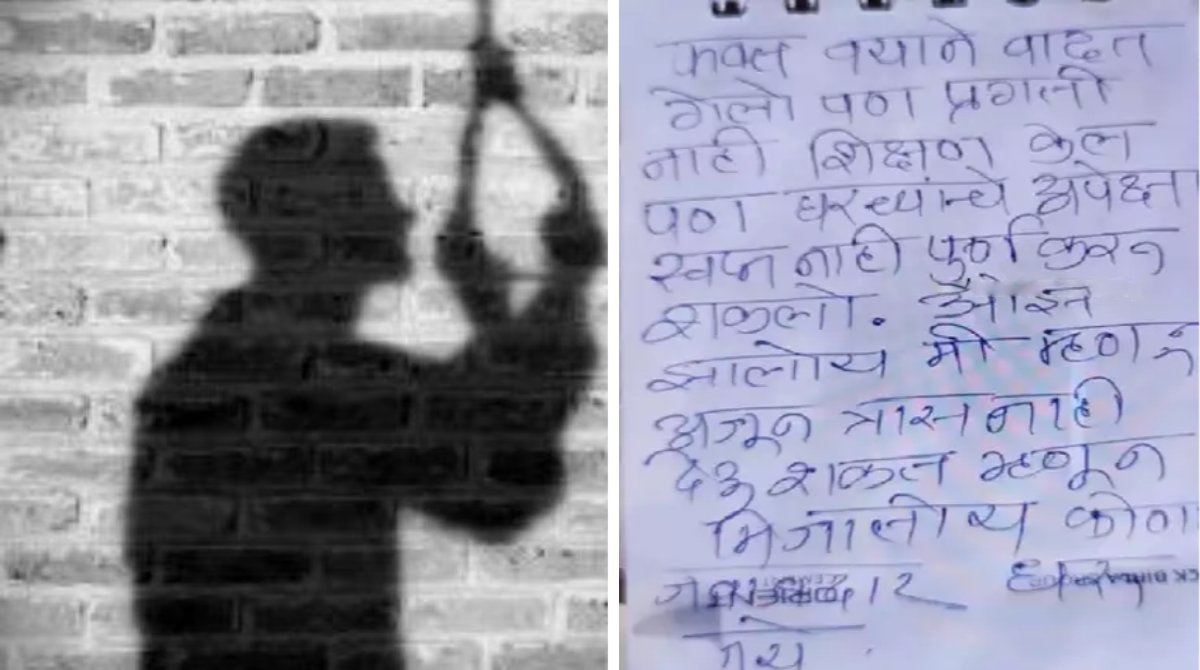 फक्त वयाने वाढत
गेलो पण प्रगती
नाही शिक्षण केल
पण घरच्यांचे अपेक्षा
स्वप्न नाही पुर्ण करू
शकलो. ओझ
झालोय मी म्हणून
अजून त्रास नाही
देऊ शकत म्हणून
मि जातोय कोण
नये.